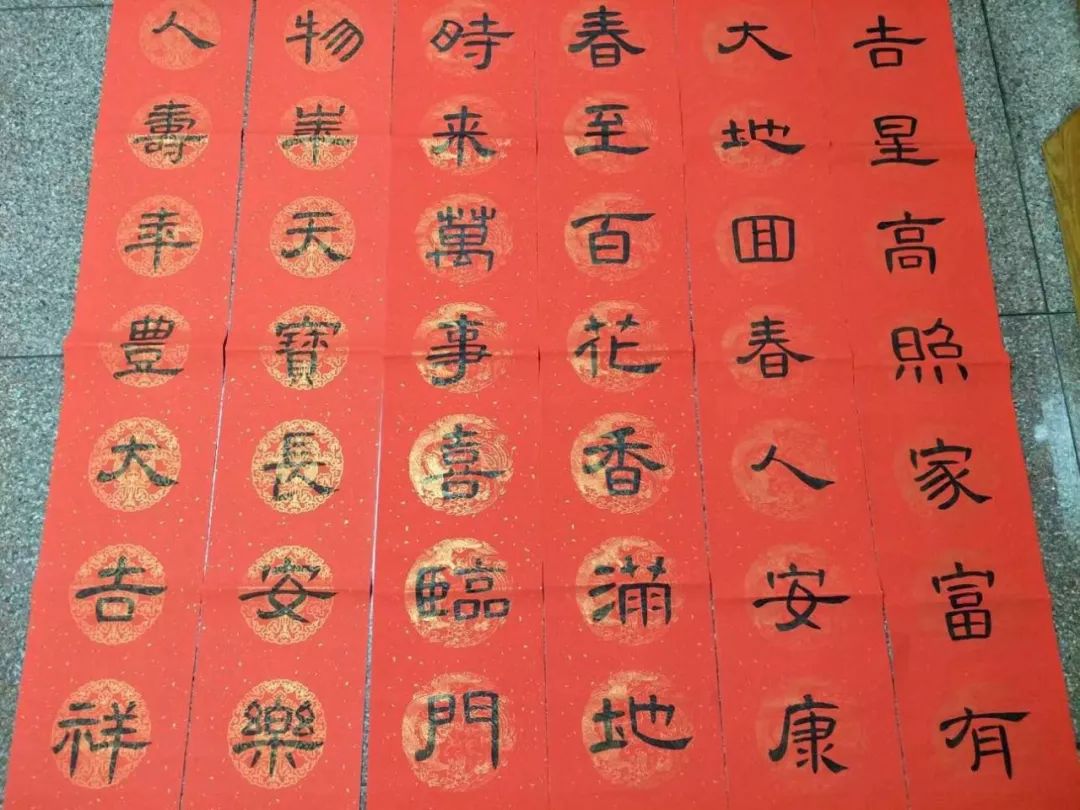 吉星高照家富有
大地囬春人安康
春至百花香滿地
時来萬事喜臨門
物華天寶長安樂
人壽年豊大吉祥